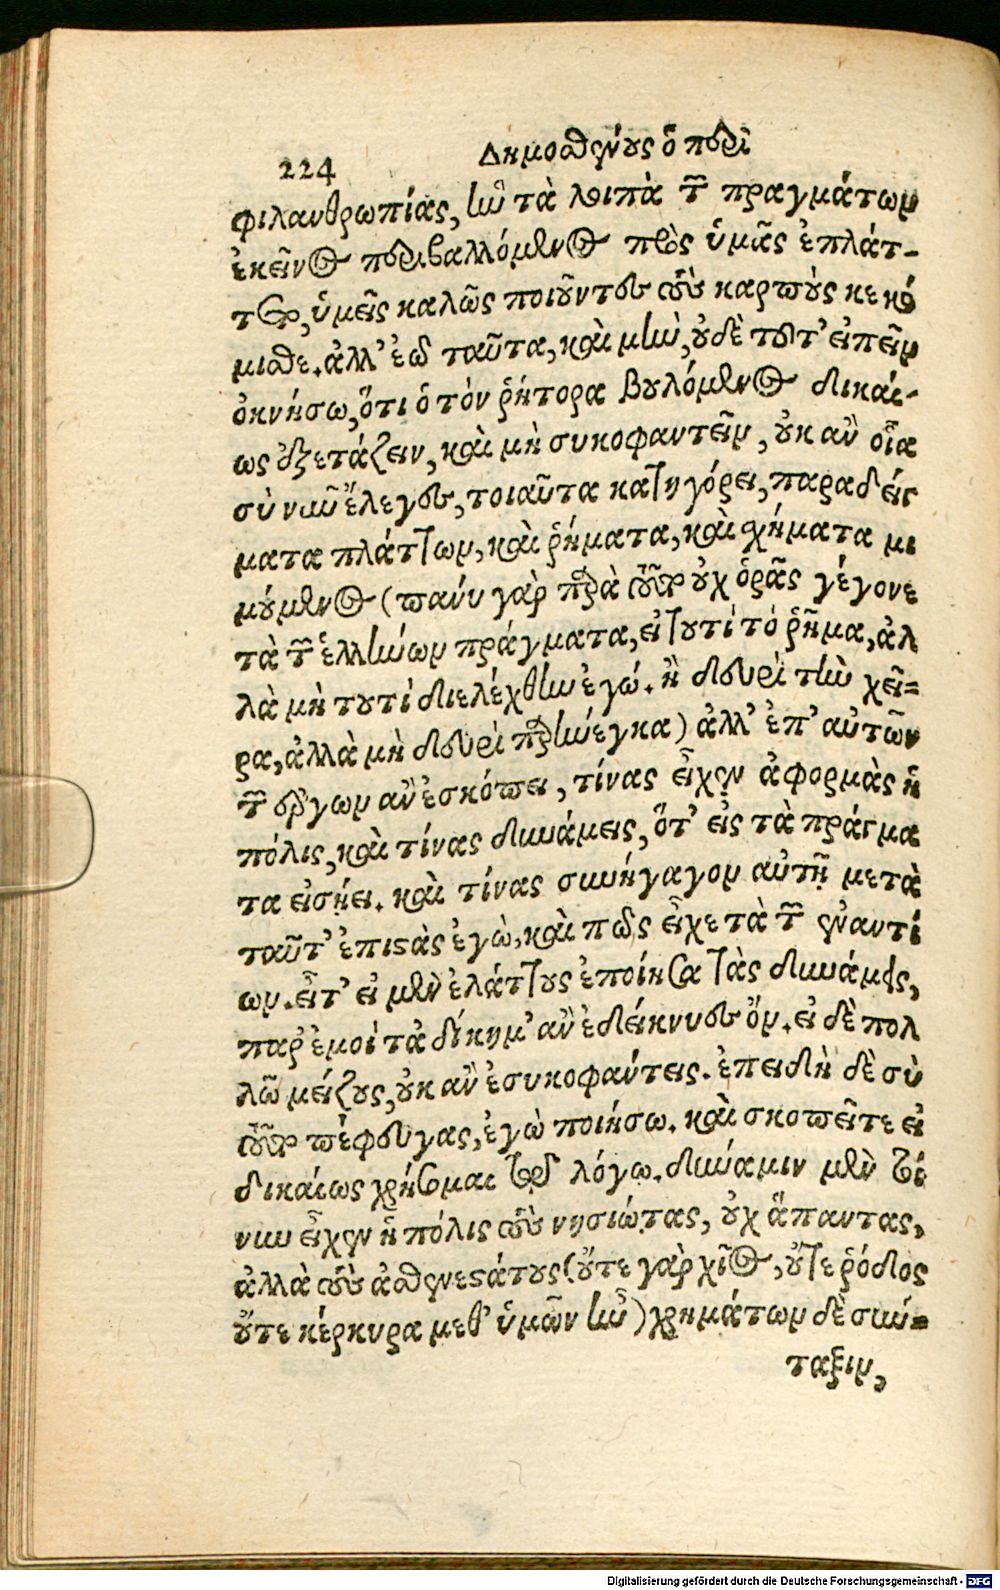 224 Δημοσθένους ὁ περὶ
φιλανθρωπίας, ἣν τὰ λοιπὰ τῶν πραγμάτων
ἐκεῖνος περιβαλλόμενος πρὸς ὑμᾶς ἐπλάτ-
τετο, ὑμεῖς καλῶς ποιοῦντες τοὺς καρποὺς κεκό
μισθε. ἀλλ' ἐῶ ταῦτα, καὶ μὴν, οὐδὲ τοῦτ' εἰπεῖν
ὀκνήσω, ὅτι ὁ τὸν ῥήτορα βουλόμενος δικαί-
ως ἐξετάζειν, καὶ μὴ συκοφαντεῖν, οὐκ ἂν οἷα
σὺ νῦν ἔλεγες, τοιαῦτα κατηγόρει, παραδείγ
ματα πλάττων, καὶ ῥήματα, καὶ σχήματα μι
μούμενος (πάνυ γὰρ παρὰ τοῦτο οὐχ ὁρᾷς γέγονε
τὰ τῶν ἑλλήνων πράγματα, εἰ τουτὶ τὸ ῥῆμα, ἀλ
λὰ μὴ τουτὶ διελέχθην ἐγώ. ἢ δευρὶ τὴν χεῖ-
ρα, ἀλλὰ μὴ δευρὶ παρήνεγκα) ἀλλ' ἐπ' αὐτῶν
τῶν ἔργων ἂν ἐσκόπει, τίνας εἶχεν ἀφορμὰς ἡ
πόλις, καὶ τίνας δυνάμεις, ὅτ' εἰς τὰ πράγμα
τα εἰσῄει. καὶ τίνας συνήγαγον αὐτῇ μετὰ
ταῦτ' ἐπιστὰς ἐγὼ, καὶ πῶς εἶχε τὰ τῶν ἐναντί
ων. εἶτ' εἰ μὲν ἐλάττους ἐποίησα τὰς δυνάμεις,
παρ' ἐμοὶ τἀδίκημ' ἂν ἐδείκνυεν ὄν. εἰ δὲ πολ
λῷ μείζους, οὐκ ἂν ἐσυκοφάντεις. ἐπειδὴ δὲ σὺ
τοῦτο πέφευγας, ἐγὼ ποιήσω. καὶ σκοπεῖτε εἰ
δικαίως χρήσομαι τῷ λόγῳ. δύναμιν μὲν τοί
νυν εἶχεν ἡ πόλις τοὺς νησιώτας, οὐχ ἅπαντας,
ἀλλὰ τοὺς ἀσθενεστάτους (οὔτε γὰρ χῖος, οὔτε ῥόδος
οὔτε κέρκυρα μεθ' ὑμῶν ἦν) χρημάτων δὲ σύν-
ταξιν,
Digitalisierung gefördert durch die Deutsche Forschungsgemeinschaft - DFG